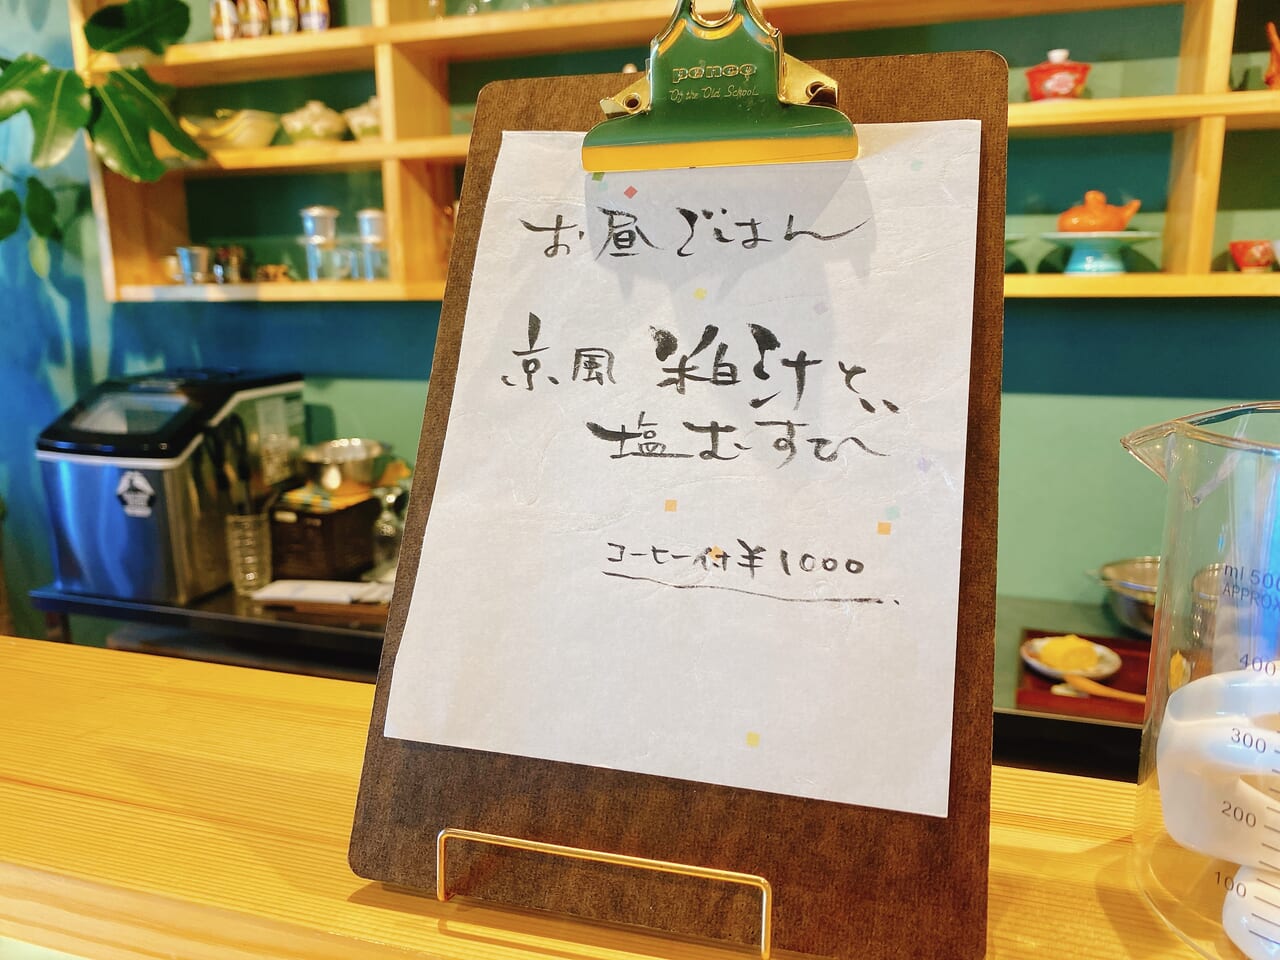 penco
Of the Old School
お昼ごはん
京風 粕汁と、
塩むすび
コーヒー付¥1000
ml 500
APPROX
400
300
200
100